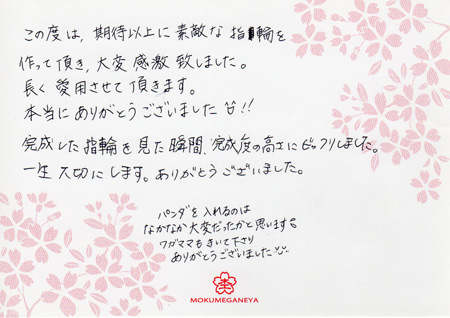 この度は、期待以上に素敵な指輪を
作って頂き、大変感激致しました。
長く愛用させて頂きます。
本当にありがとうございました!!
完成した指輪を見た瞬間、完成度の高さにビックリしました。
一生大切にします。ありがとうございました。
パンダを入れるのは
なかなか大変だったかと思います
ワガママもきいて下さり
ありがとうございました
MOKUMEGANEYA